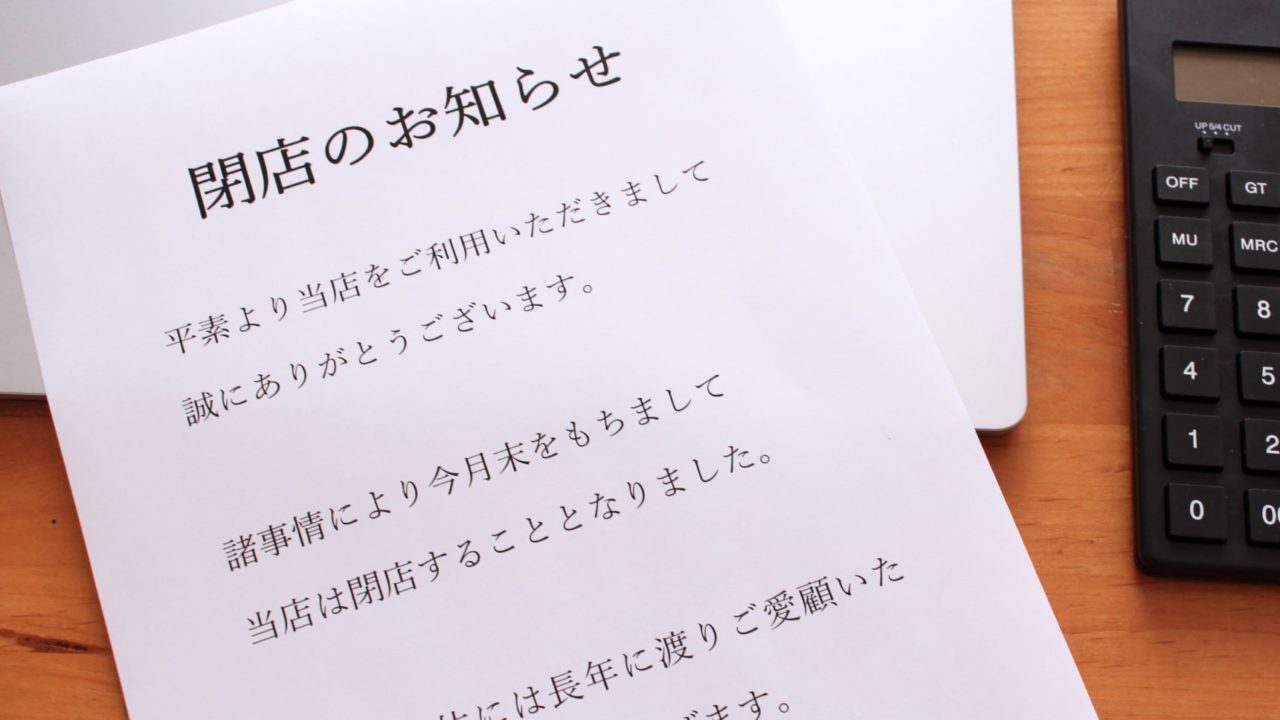 閉店のお知らせ
平素より当店をご利用いただきまして
誠にありがとうございます。
諸事情により今月末をもちまして
当店は閉店することとなりました。
には長年に渡りご愛顧いた
ます。
UP 5/4 CUT
OFF GT
MU MRC
7 8
4 5
1 2
0 00